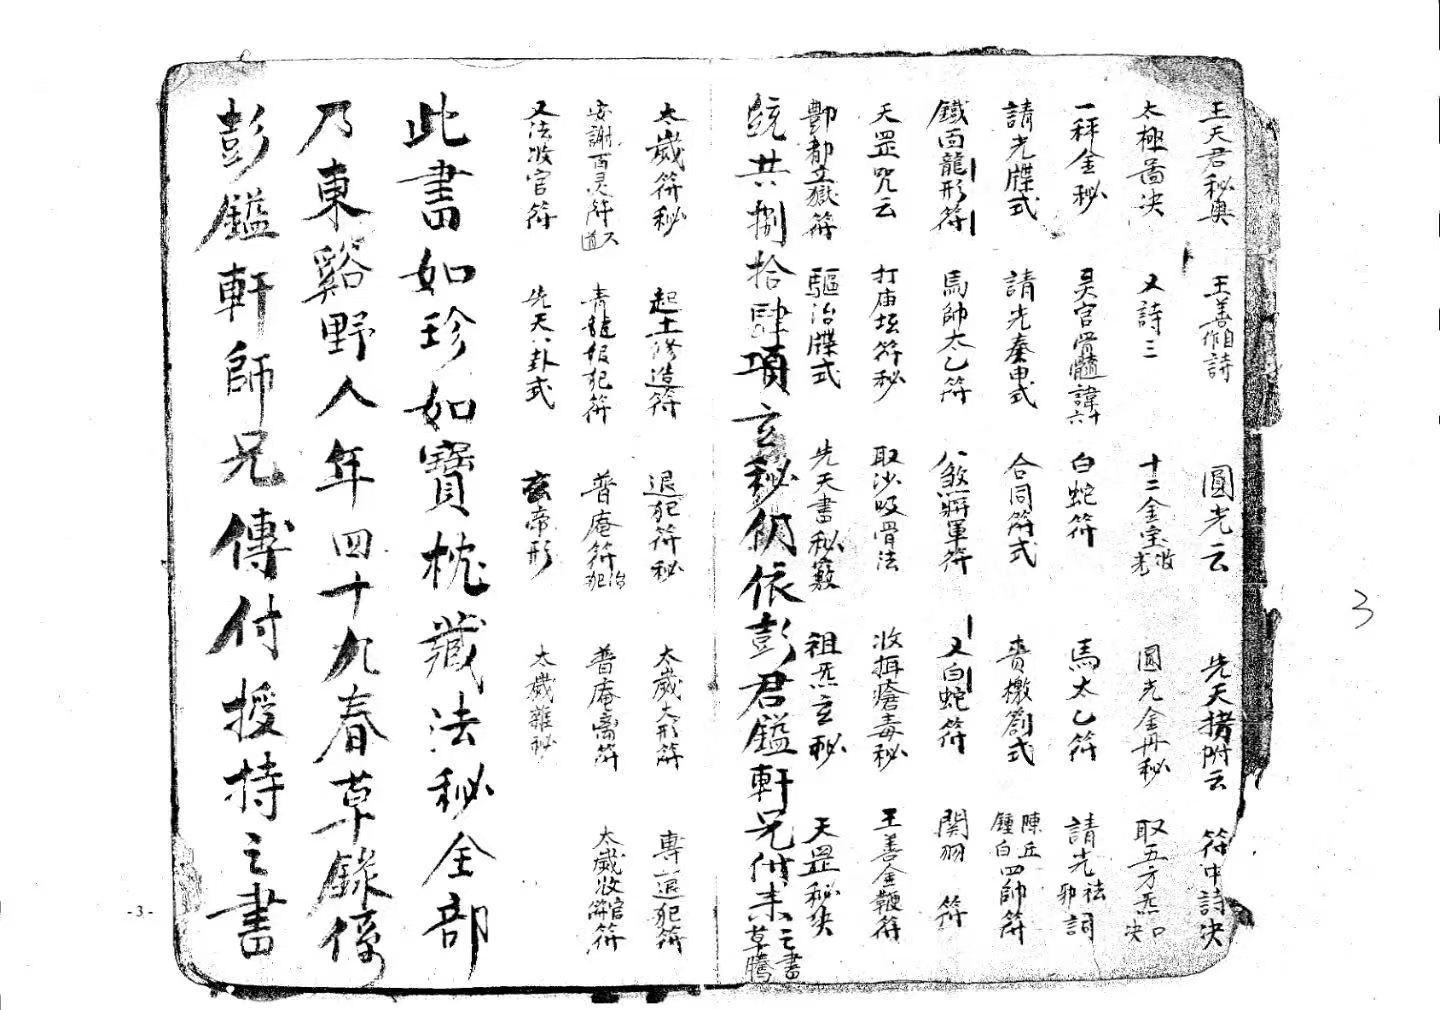 王天君秘奥 王善願詩 圓光云 先天撐附云 符中詩决
太極啚决 又詩三 十二金宗收光 圓光金丹秘 取五方炁口决
一秤金秘 灵官骨髓諱六十 白蛇符 馬太乙符 請光祛邪詞
請光牒式 請光奏申式 合同符式 賫檄劄式 陳丘鍾白四帥符
鐵面龍形符 馬帥太乙符 八煞將軍符 又白蛇符 関羽符
天罡咒云 打庙坛符秘 取沙吸骨法 收揖瘡毒秘 王善金鞭符
酆都立獄符 驅治牒式 先天書秘竅 祖炁玄秘 天罡秘决
統共捌拾肆項玄秘仍依彭君鎰軒兄付来之書草騰
太歲符秘 起土修造符 退犯符秘 太歲大形符 專退犯符
安謝百灵符道又 青龍報犯符 普庵符治犯 普庵离符 太歲收官符
又法收官符 先天八卦式 玄帝形 太歲雜秘
此書如珍如寶枕藏法秘全部
乃東谿野人年四十九春草錄傳
彭鎰軒師兄傳付授持之書
-3-
3